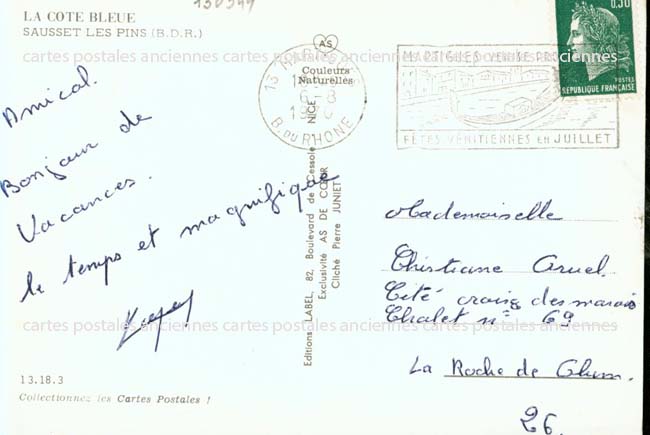 130599
LA COTE BLEUE
SAUSSET LES PINS (B.D.R.)
cartes postales anciennes cartes postales anciennes cartes postales anciennes
Amical.
Bonjour de
Vacances.
le temps et magnifique
13.18.3
Collectionnez les Cartes Postales !
AS
Couleurs
Naturelles
Editions LABEL, 82, Boulevard de Cessole NICE
Exclusivité AS DE CŒUR
Cliché Pierre JUNIET
13
B. DU RHONE
MARTIGUES VENISE
FÊTES VÉNITIENNES EN JUILLET
0,30
POSTES
REPUBLIQUE FRANÇAISE
Mademoiselle
Christiane Aruel.
Cité croix des marais
Chalet n° 69
cartes postales anciennes cartes postales anciennes cartes postales anciennes
La Roche de Glun.
26.